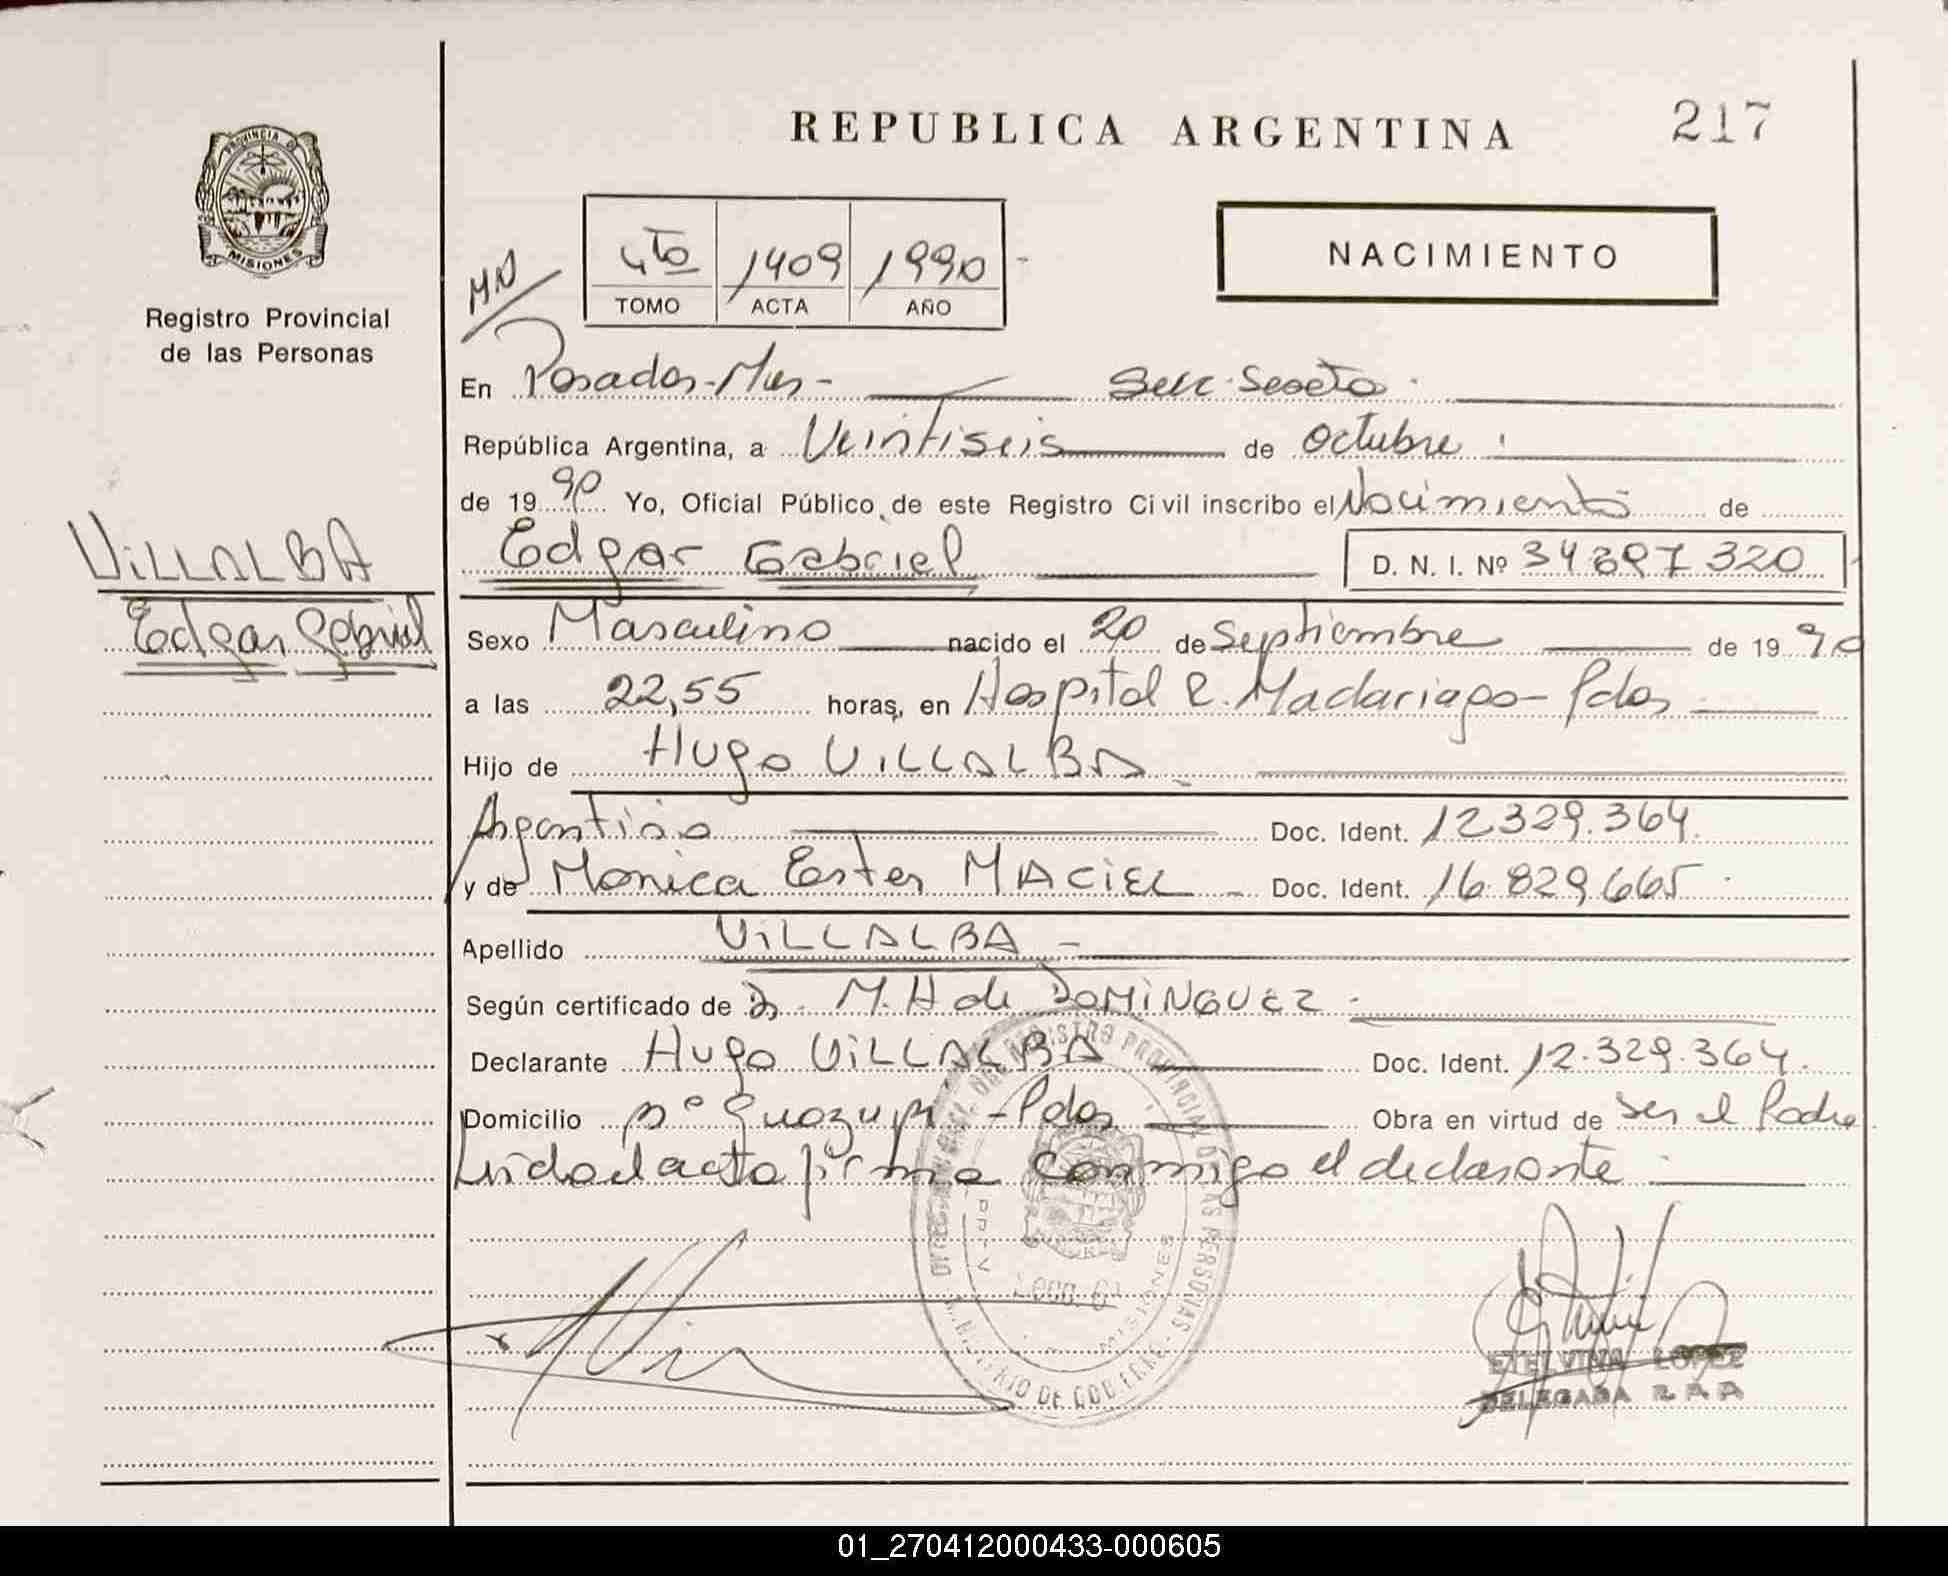 REPUBLICA ARGENTINA
217
PROVINCIA DE
MISIONES
Registro Provincial
de las Personas
4to 1409 1990
TOMO ACTA AÑO
NACIMIENTO
En Posadas-Mnes- Secc. Sexta
República Argentina, a Veintiseis de Octubre
de 1990 Yo, Oficial Público de este Registro Civil inscribo el Nacimiento de
VILLALBA
Edgar Gabriel
Edgar Gabriel D. N. I. Nº 320
Sexo Masculino nacido el 20 de Septiembre de 1990
a las 22,55 horas, en Hospital R. Madariaga - Pdas
Hijo de Hugo VILLALBA
Argentino Doc. Ident. 12.329.364.
y de Monica Ester MACIEL - Doc. Ident. 16.829.665
Apellido VILLALBA -
Según certificado de M.H de DOMINGUEZ
Declarante Hugo VILLALBA Doc. Ident. 12.329.364.
Domicilio Bº Guazupi - Pdas Obra en virtud de ser el Padre
Leido el acta firma conmigo el declarante
REGISTRO PROVINCIAL DE LAS PERSONAS
MISIONES
MINISTERIO DE GOBIERNO
ETELVINA LOPEZ
DELEGADA
01_270412000433-000605